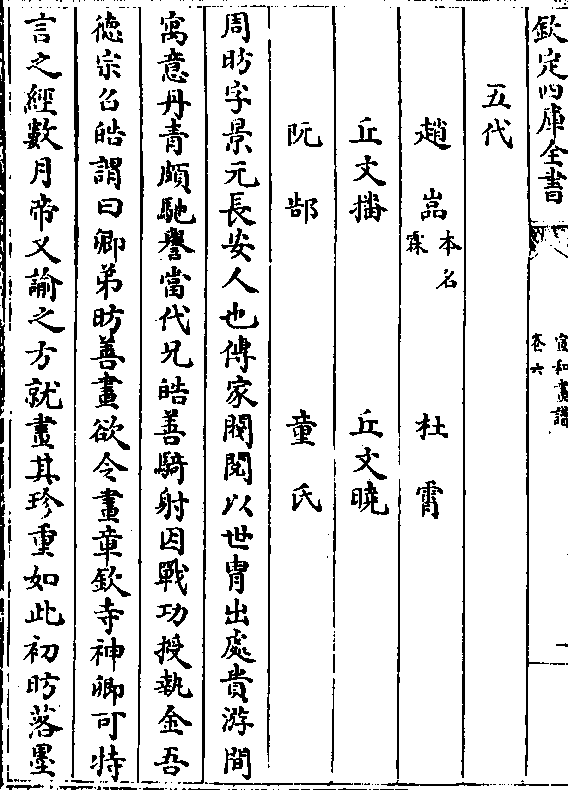 欽定四庫全書
宣和畫譜
卷六
五代
趙嵓本名霖
杜霄
丘文播
丘文曉
阮郜
童氏
周昉字景元長安人也傳家閥閱以世胄出處貴游間
寓意丹青頗馳譽當代兄皓善騎射因戰功授執金吾
徳宗召皓謂曰卿弟昉善畫欲令畫章欽寺神卿可特
言之經數月帝又諭之方就畫其珍重如此初昉落墨